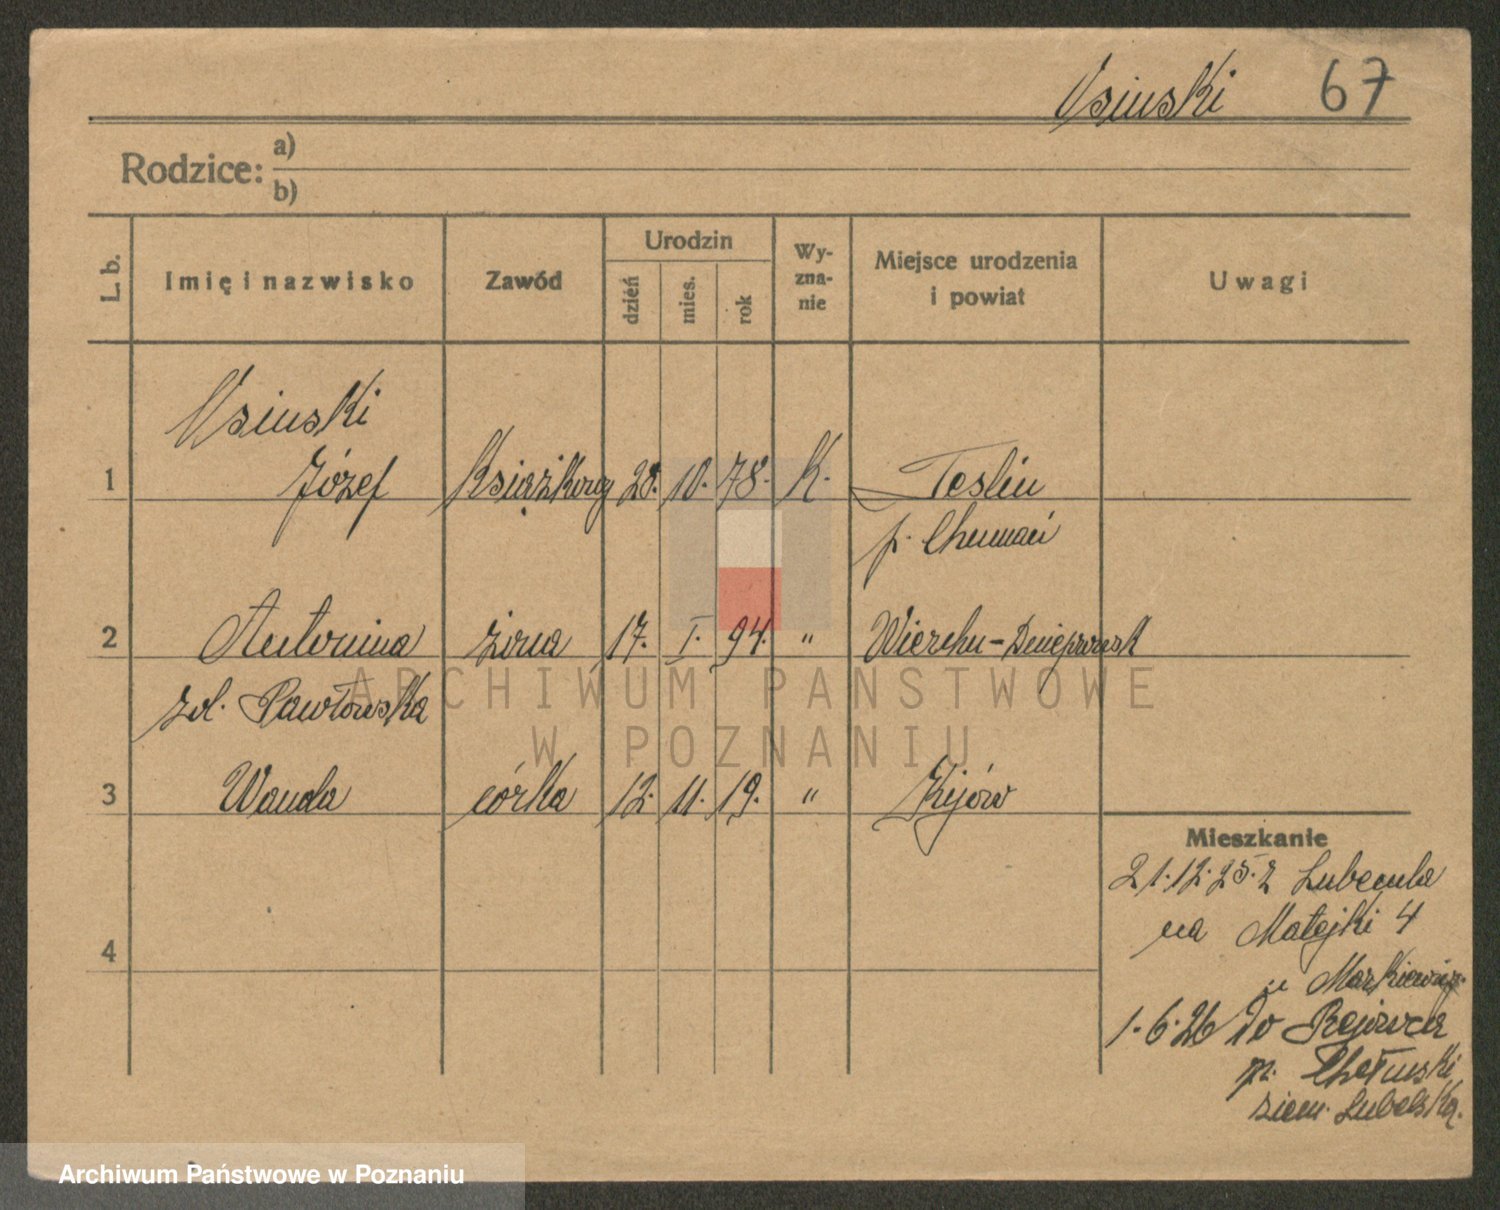 Usinski 67
Rodzice: a)
b)
L. b. Imię i nazwisko Zawód Urodzin dzień mies. rok Wy-zna-nie Miejsce urodzenia i powiat Uwagi
Usinski
1 Józef Książkowy 28. 10. 78. K. Teslin
p.
2 Antonina żona 17. I. 94. " Wierchu-Dnieprowsk
zd. Pawłowska
3 Wanda córka 12. 11. 19. " Kijów
4
Mieszkanie
21.12.25. z Lubonia
na Matejki 4
u Markiewicz
1.6.26 do Rejowca
p. Chełmski
ziem. Lubelska.
ARCHIWUM PAŃSTWOWE
W POZNANIU
Archiwum Państwowe w Poznaniu